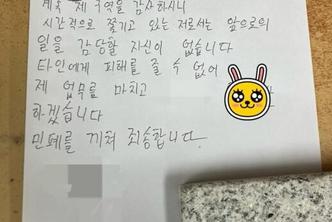 계속 제 구역을 감사하시니
시간적으로 쫓기고 있는 저로서는 앞으로의
일을 감당할 자신이 없습니다
타인에게 피해를 줄 수 없어
제 업무를 마치고
하겠습니다
민폐를 끼쳐 죄송합니다.